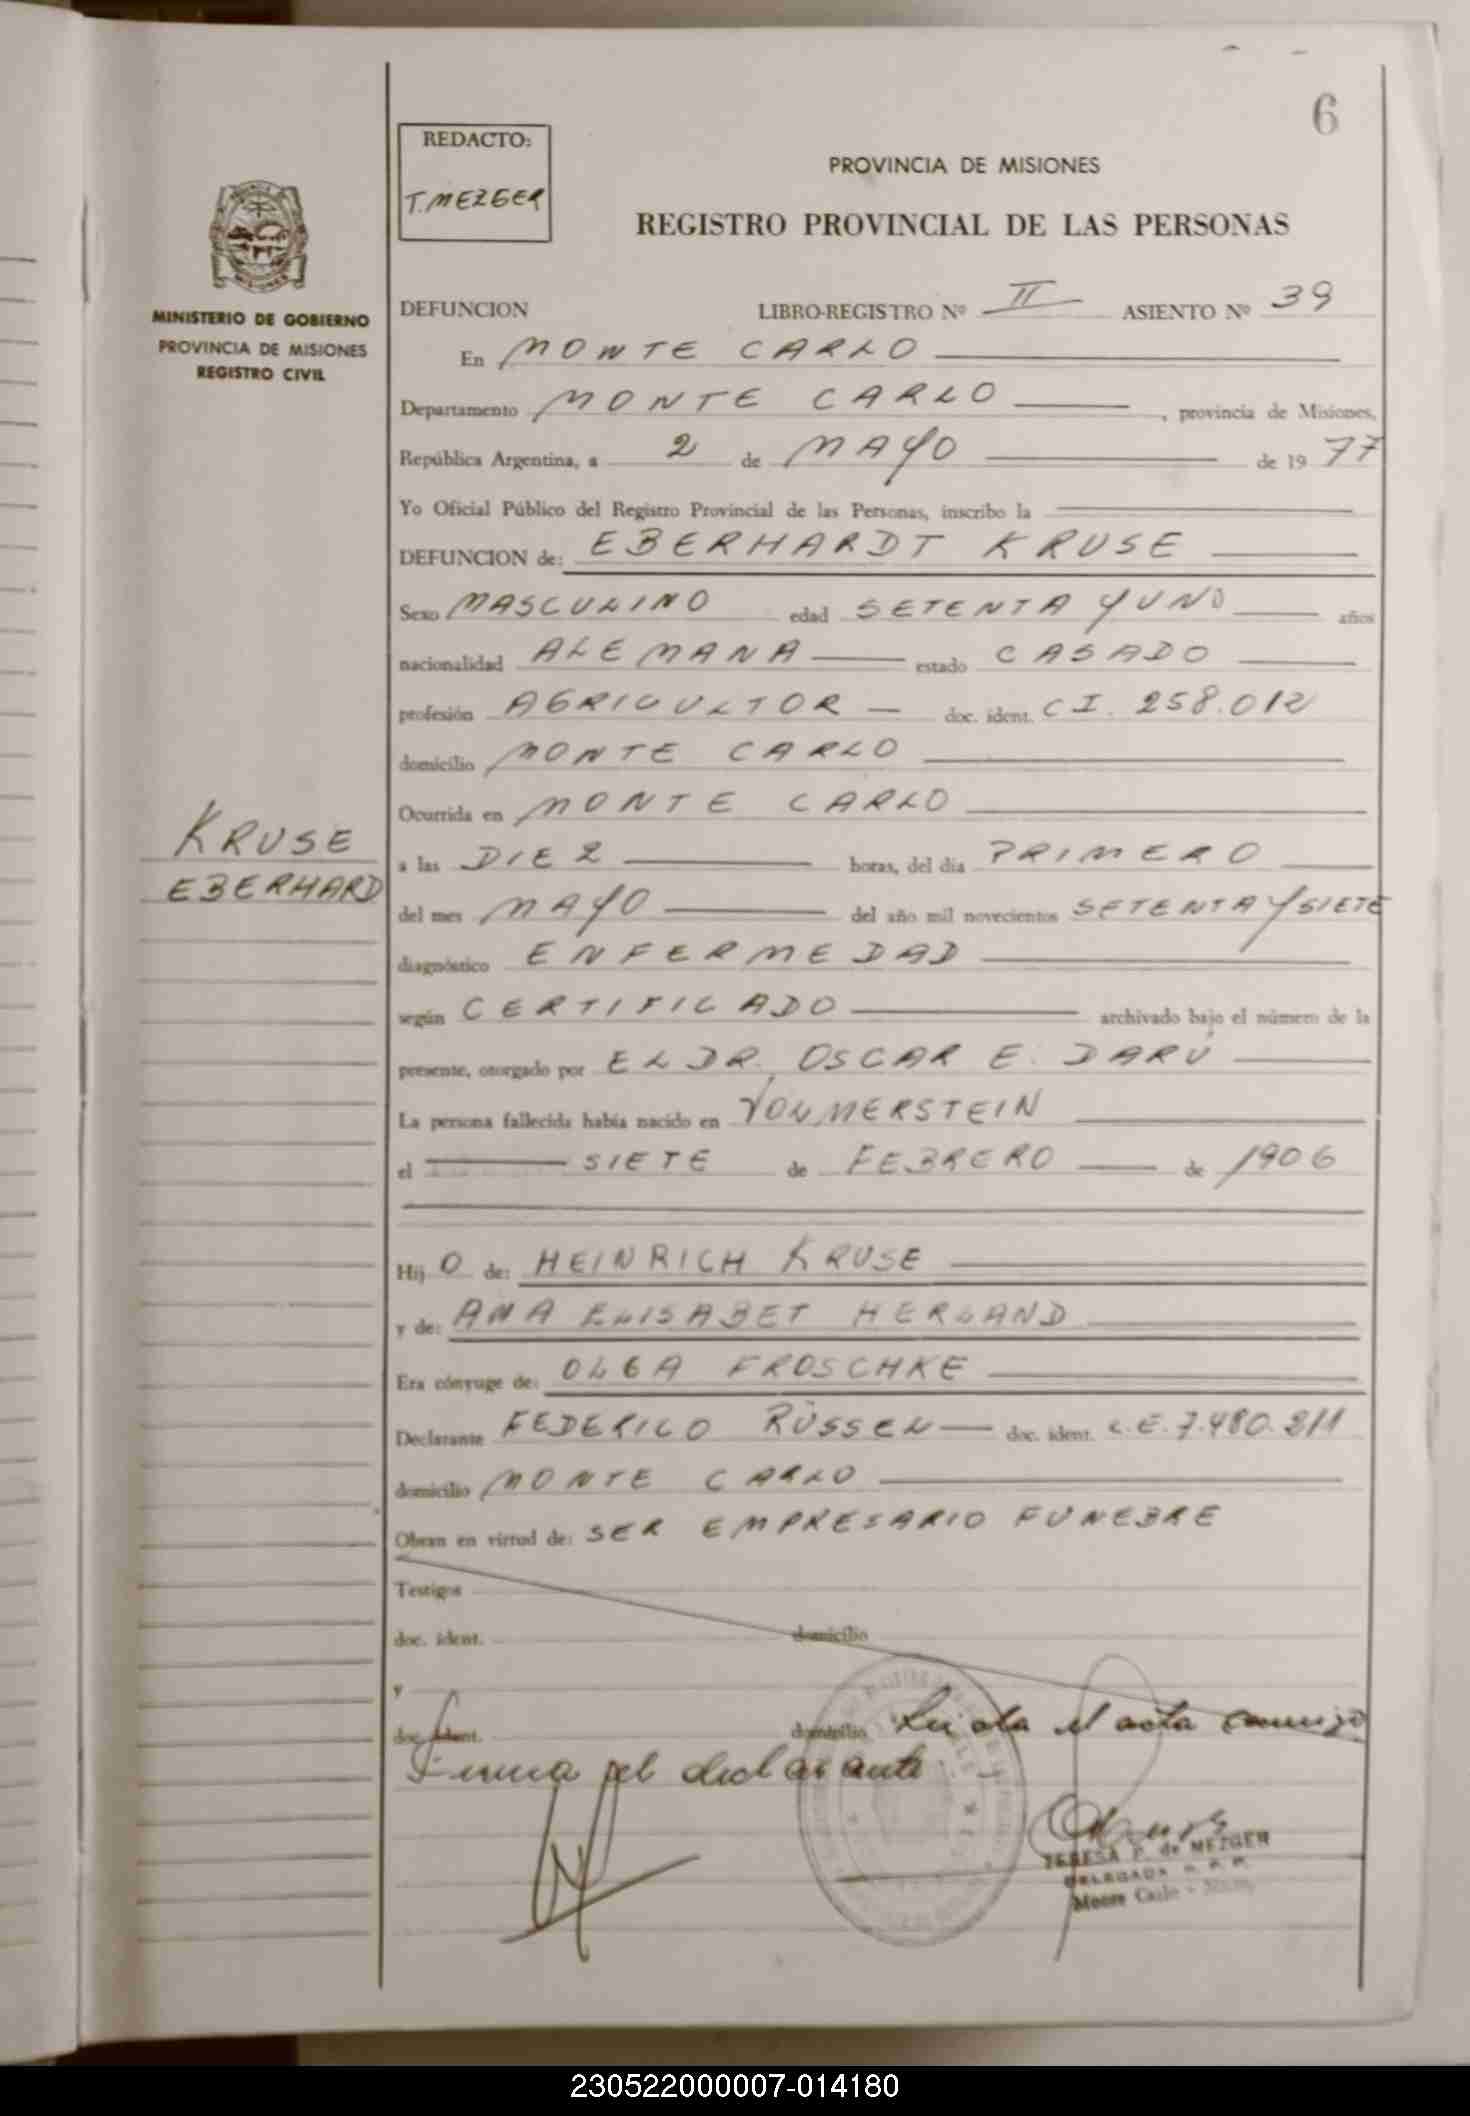 6
REDACTO:
T. MEZGER
PROVINCIA DE MISIONES
REGISTRO PROVINCIAL DE LAS PERSONAS
MINISTERIO DE GOBIERNO
PROVINCIA DE MISIONES
REGISTRO CIVIL
DEFUNCION LIBRO-REGISTRO Nº II ASIENTO Nº 39
En MONTE CARLO
Departamento MONTE CARLO, provincia de Misiones,
República Argentina, a 2 de MAYO de 1977
Yo Oficial Público del Registro Provincial de las Personas, inscribo la
DEFUNCION de: EBERHARDT KRUSE
Sexo MASCULINO edad SETENTA Y UNO años
nacionalidad ALEMANA estado CASADO
profesión AGRICULTOR doc. ident. C I. 258.012
domicilio MONTE CARLO
Ocurrida en MONTE CARLO
KRUSE
EBERHARD
a las DIEZ horas, del día PRIMERO
del mes MAYO del año mil novecientos SETENTA Y SIETE
diagnóstico ENFERMEDAD
según CERTIFICADO archivado bajo el número de la
presente, otorgado por EL DR. OSCAR E. DARÚ
La persona fallecida había nacido en VOLMERSTEIN
el SIETE de FEBRERO de 1906
Hij O de: HEINRICH KRUSE
y de: ANA ELISABET HERLAND
Era cónyuge de: OLGA FROSCHKE
Declarante FEDERICO RÜSSEN doc. ident. L.E. 7.480.211
domicilio MONTE CARLO
Obran en virtud de: SER EMPRESARIO FUNEBRE
Testigos
doc. ident. domicilio
y
doc. ident. domicilio Leida el acta conmigo
Firma del declarante
TERESA P. de MEZGER
DELEGADA R. P. P.
Monte Carlo - Mnes.
230522000007-014180